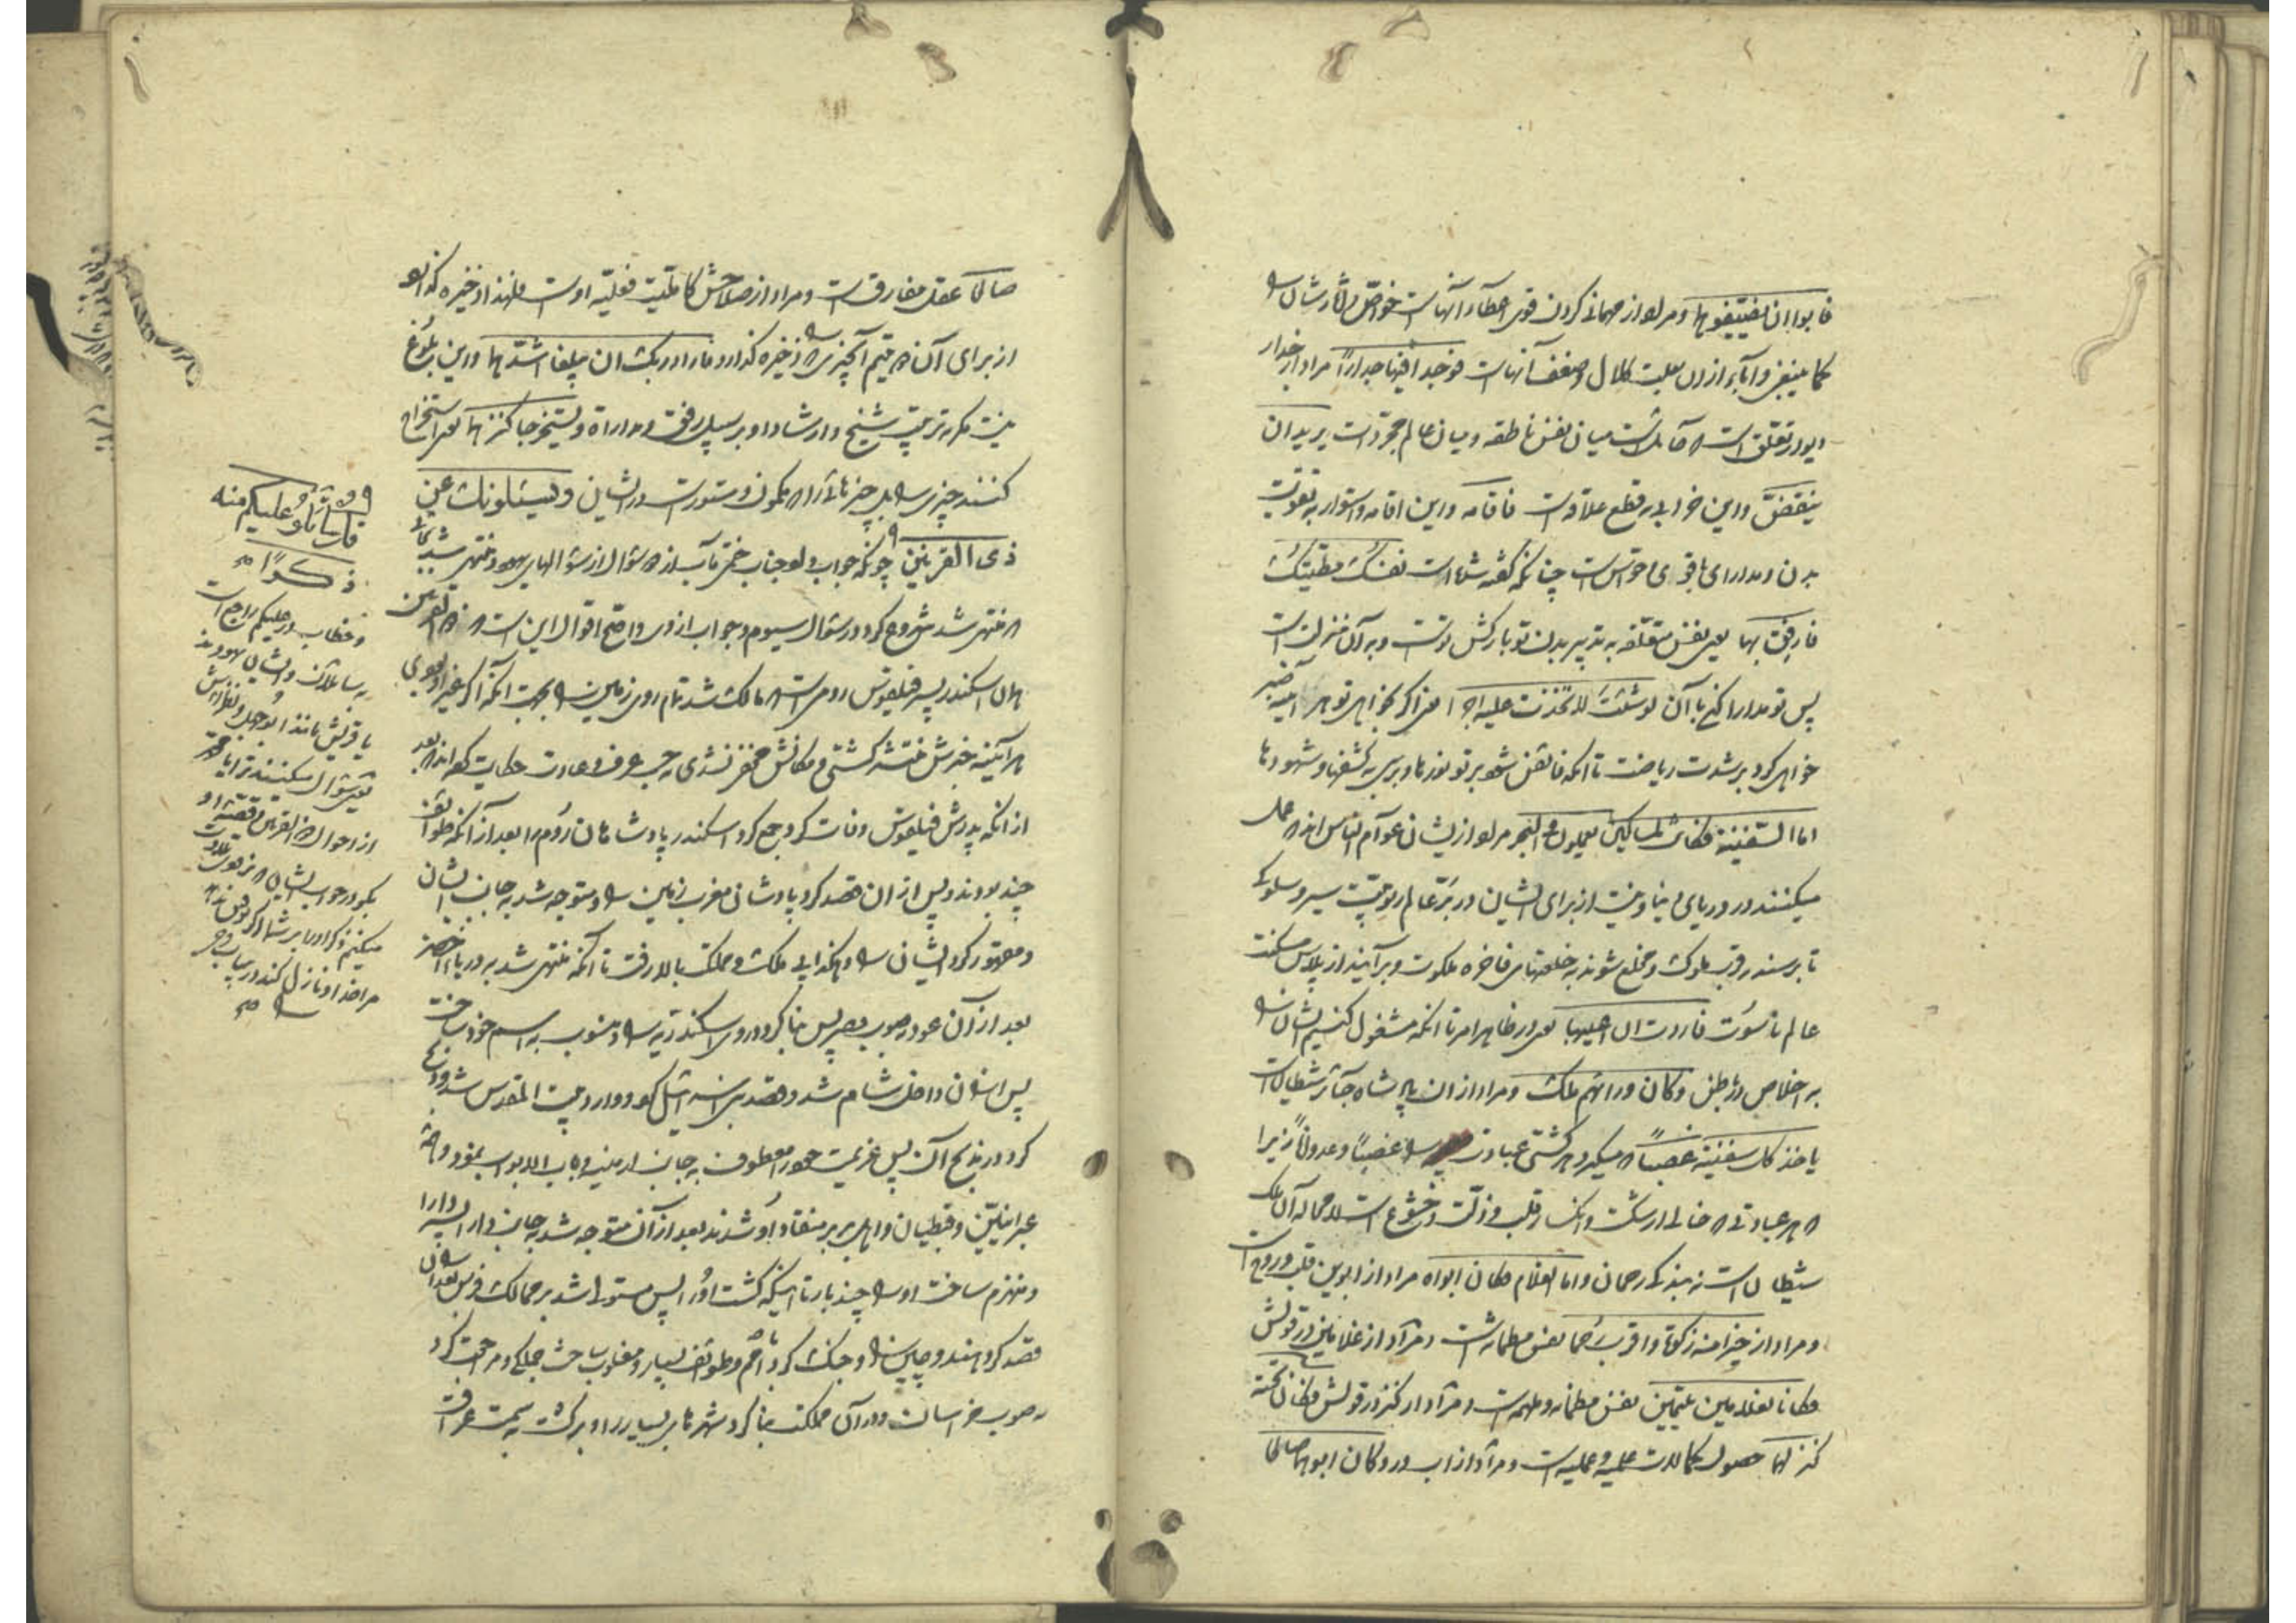 فابوا ان یضیفوهما و مراد از مهمانی کردن قوی اعطاء آنهاست خواص و آثارشان را
کما ینبغی و اباء از ان بعلت کلال و ضعف آنهاست فوجدا فیها جدارا مراد از جدار
دیوار تعلق است که حائل است میان نفس ناطقه و میان عالم مجردات یرید ان
ینقض و این خرابی به قطع علاقه است فاقامه و این اقامه و استوار به تقویت
بدن و مدارای با قوی و حواس است چنانکه گفته شده است نفسک مطیتک
فارفق بها یعنی نفس متعلقه به تدبیر بدن تو بارکش تست و به آن منزل است
پس تو مدارا کنی با آن لو شئت لاتخذت علیه اجرا یعنی اگر بخواهی تو هر آینه صبر
خواهی کرد بر شدت ریاضت تا آنکه فائض شود بر تو نورها و برسی به کشفها و شهودها
اما السفینة فکانت لمساکین یعملون فی البحر مراد از ایشان عوام الناس اند که عمل
میکنند در دریای دنیا و نیست از برای ایشان در بر عالم ربوبیت سیر و سلوک
تا برسند بقرب ملوک و مخلع شوند به خلعتهای فاخره ملکوت و برآیند از پلاس مسکنت
عالم ناسوت فاردت ان اعیبها یعنی در ظاهر امر تا آنکه مشغول کنیم ایشان را
به اخلاص در باطن و کان ورائهم ملک و مراد از ان پادشاه جائر شیطان است
یاخذ کل سفینة غصبا که میگیرد هر کشتی عبادت را غصبا و عدوانا زیرا
که هر عبادتی که خالی از شکست و انکسار قلب و ذلت و خشوع است لامحاله آن ملک
شیطان است نه بندگی رحمان و اما الغلام فکان ابواه مراد از ابوین قلب و روح است
و مراد از خیرا منه زکوة و اقرب رحما نفس مطمئنه است و مراد از غلامین در قولش
فکانا لغلامین یتیمین نفس مطمئنه و ملهمه است و مراد از کنز در قولش فکان تحته
کنز لهما حصول کمالات علمیه و عملیه است و مراد از اب در و کان ابوهما صالحا
صالحا عقل مفارق است و مراد از صلاحش کاملیت فعلیه اوست ولهذا ذخیره گذارد
از برای آن دو یتیم آنچیزی را که ذخیره گذارد فاراد ربک ان یبلغا اشدهما و این بلوغ
نیست مگر به تربیت شیخ و ارشاد او بر سبیل رفق و مدارات و یستخرجا کنزهما یعنی استخراج
کنند چیزی را بل چیزهائی را که مکمون و مستور است در ایشان و یسئلونک عن
ذی القرنین چونکه جواب داد جناب ختمی مآب از دو سؤال از سؤالهای یهود و منتهی شد بجائی
که منتهی شد شروع کرد در سؤال سیوم و جواب از وی و اصح اقوال این است که ذو القرنین
همان اسکندر پسر فیلقوس رومی است که مالک شد تمام روی زمین را بجهت آنکه اگر غیر او بودی
هر آینه خبرش منتشر گشتی و مکانش مخفی نشدی به حسب عرف و عادت حکایت کرده اند که بعد
از انکه پدرش فیلقوس وفات کرد جمع کرد اسکندر پادشاهان روم را بعد از آنکه طوائف
چند بودند و پس از ان قصد کرد پادشاهان مغرب زمین را و متوجه شد به جانب ایشان
و مقهور کرد ایشان را و هکذا بر ملک و مملکت بالا رفت تا آنکه منتهی شد به دریای اخضر
بعد از آن عود به صوب مصر پس بنا کرد در وی اسکندریه را و منسوب به اسم خود ساخت
پس از ان داخل شام شد و قصد بنی اسرائیل کرد و وارد بیت المقدس شد و قربانی
کرد در مذبح آن پس عزیمت خود را معطوف به جانب ارمنیه و باب الابواب نمود و همه
عبرانیین و قبطیان و اهل بربر منقاد او شدند بعد از آن متوجه شد به جانب دارا پسر دارا
و منهزم ساخت او را چند بار تا اینکه کشت او را پس مستولی شد بر ممالک فرس بعد از ان
قصد کرد هند و چین را و جنگ کرد با امم و طوائف بسیار و مغلوب ساخت جملگی و مراجعت کرد
به صوب خراسان و در آن مملکت بنا کرد شهرهای بسیار را و برگشت به سمت عراق
قل سأتلو علیکم منه
ذکرا
و خطاب در علیکم راجع است
به سائلان و ایشان یهودند
یا قریش مانند ابوجهل و نظرایش
یعنی سؤال میکنند ترا یا محمد
از احوال ذو القرنین و قصه او
بگو در جواب ایشان که زود تلاوت
میکنم ذکر او را بر شما
خدا نازل کند در باب وی